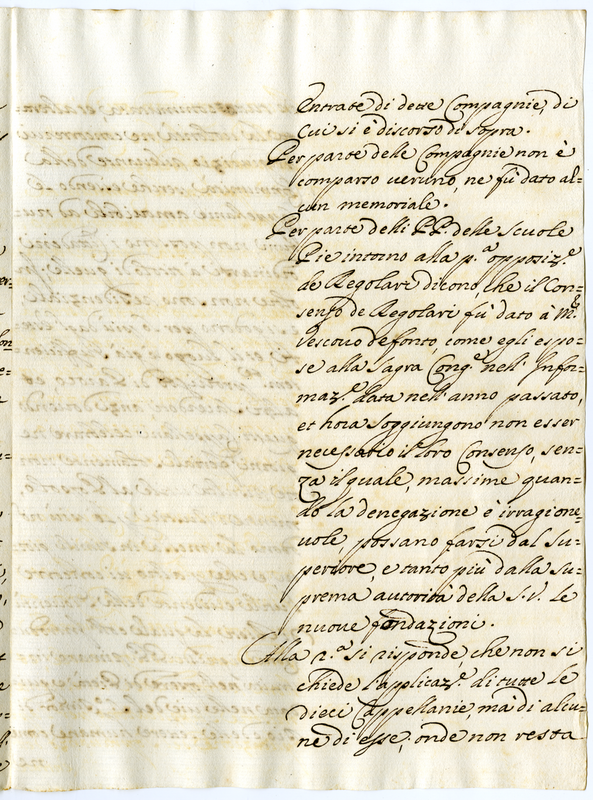 Entrate di dette Compagnie, di
cui si è discorso di sopra.
Per parte delle Compagnie non è
comparso veruno, ne fù dato al=
cun memoriale.
Per parte delli PP. delle Scuole
Pie intorno alla p.ª opposiz.e
de Regolari dicono, che il Con=
senso de Regolari fù dato à M.r
Vescovo defonto, come egli espo=
se alla Sagra Cong.e nell' Infor=
maz.e data nell' anno passato,
et hora soggiungono non esser
necessario il loro Consenso, sen=
za il quale, massime quan=
do la denegazione è irragione=
uole, possano farsi dal Su=
periore, e tanto più dalla Su=
prema autorità della S.V. le
nuove fondazioni.
Alla 2.ª si risponde, che non si
chiede l'applicaz.e di tutte le
dieci Cappellanie, mà di alcu=
ne di esse, onde non resta